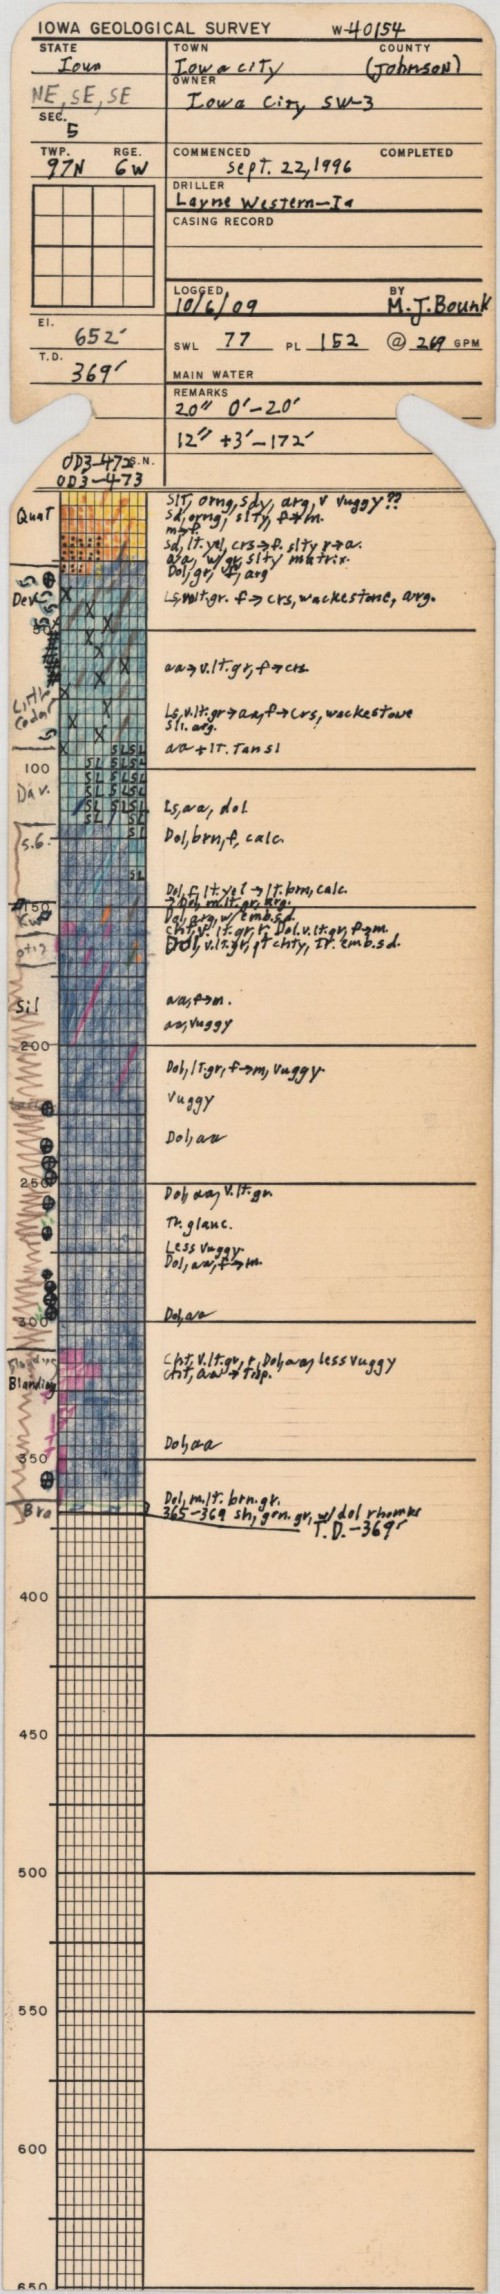 IOWA GEOLOGICAL SURVEY W-40154
STATE
Iowa
TOWN COUNTY
Iowa city (Johnson)
NE, SE, SE
OWNER
Iowa City SW-3
SEC.
5
TWP. RGE.
97N 6W
COMMENCED COMPLETED
Sept. 22, 1996
DRILLER
Layne Western-Ia
CASING RECORD
LOGGED BY
10/6/09 M.J. Bounk
El.
652'
SWL 77 PL 152 @ 269 GPM
T.D.
369'
MAIN WATER
REMARKS
20" 0'-20'
12" +3'-172'
S.N.
OD3-473
Quat
Slt, orng, sdy, arg, v vuggy??
Sd, orng, slty, f→m.
m→f.
Sd, lt. yel, crs→f. slty r→a.
a/a, w/gr, slty matrix.
Dol, gr, vf, arg
Dev
Ls, v. lt. gr. f→crs, wackestone, arg.
50
aa→v. lt. gr, f→crs
Little Cedar
Ls, v. lt. gr→aa, f→crs, wackestone
sli. arg.
aa + lt. tan sl
SL SL
100
Dav.
Ls, aa, dol.
S.G.
Dol, brn, f, calc.
Dol, f, lt. yel → lt. brn, calc.
→ Dol, m. lt. gr, arg.
150
Dol, arg, w/ emb. sd.
Kw
Cht, v. lt. gr, r, Dol. v. lt. gr, f→m.
otis
Dol, v. lt. gr, pt chty, Tr. emb. sd.
Sil
aa, f→m.
aa, vuggy
200
Dol, lt. gr, f→m, vuggy
Vuggy
Dol, aa
250
Dol, aa, v. lt. gr.
Tr. glauc.
Less vuggy
Dol, aa, f→m.
300
Dol, aa
Cht, v. lt. gr, r, Dol, aa, less vuggy
Cht, aa → Trip.
Blanding
Dol, aa
350
Dol, m. lt. brn. gr.
Bra
365-369 sh, grn. gr, w/ dol rhombs
T.D.-369'
400
450
500
550
600
650